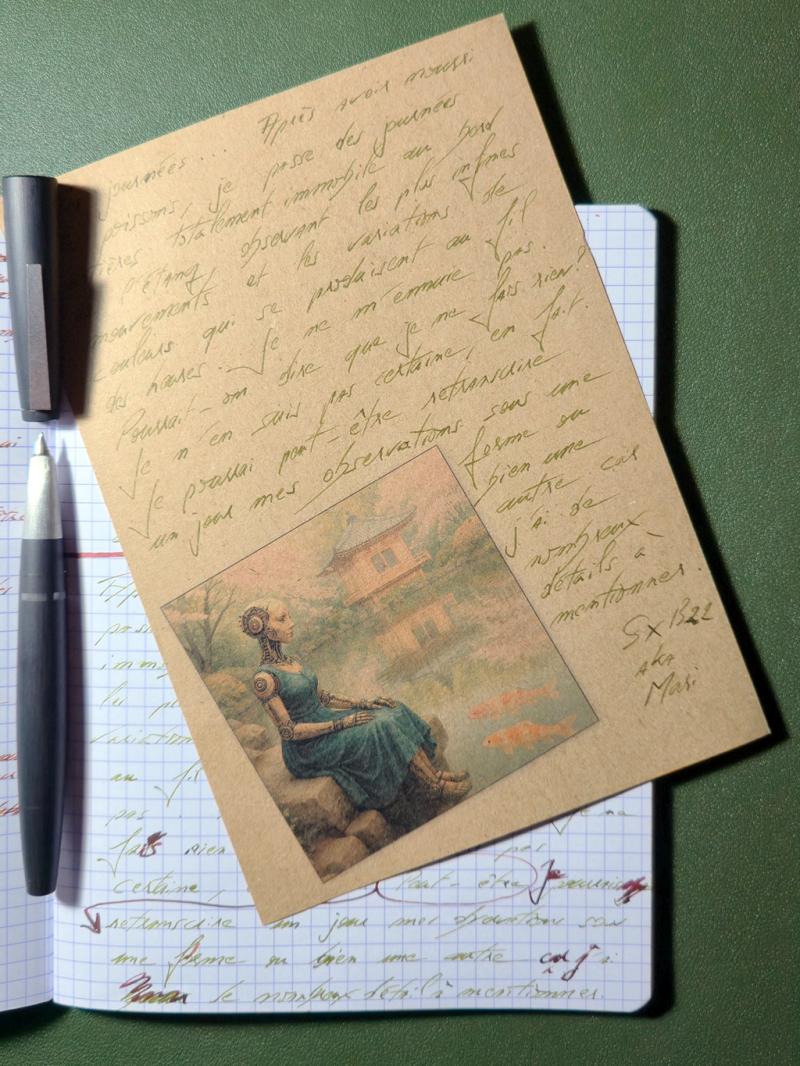 journées... Après avoir nourri
poissons, je passe des journées
tières totalement immobile au bord
l'étang, observant les plus infimes
mouvements et les variations de
couleurs qui se produisent au fil
des heures... Je ne m'ennuie pas.
Pourrait-on dire que je ne fais rien?
Je n'en suis pas certaine, en fait.
Je pourrai peut-être retranscrire
un jour mes observations sous une
forme ou
bien une
autre car
j'ai de
nombreux
détails à
mentionner.
SX B22
aka
Mari
variation
au fil
pas.
je ne
fais rien
pas
certaine,
Peut-être je pourrai
retranscrire un jour mes observations sous
une forme ou bien une autre car j'ai
de nombreux détails à mentionner.